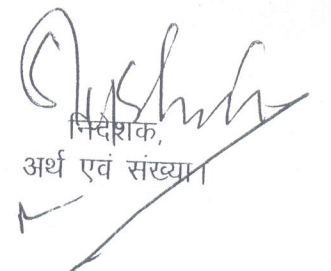 निदेशक,
अर्थ एवं संख्या।